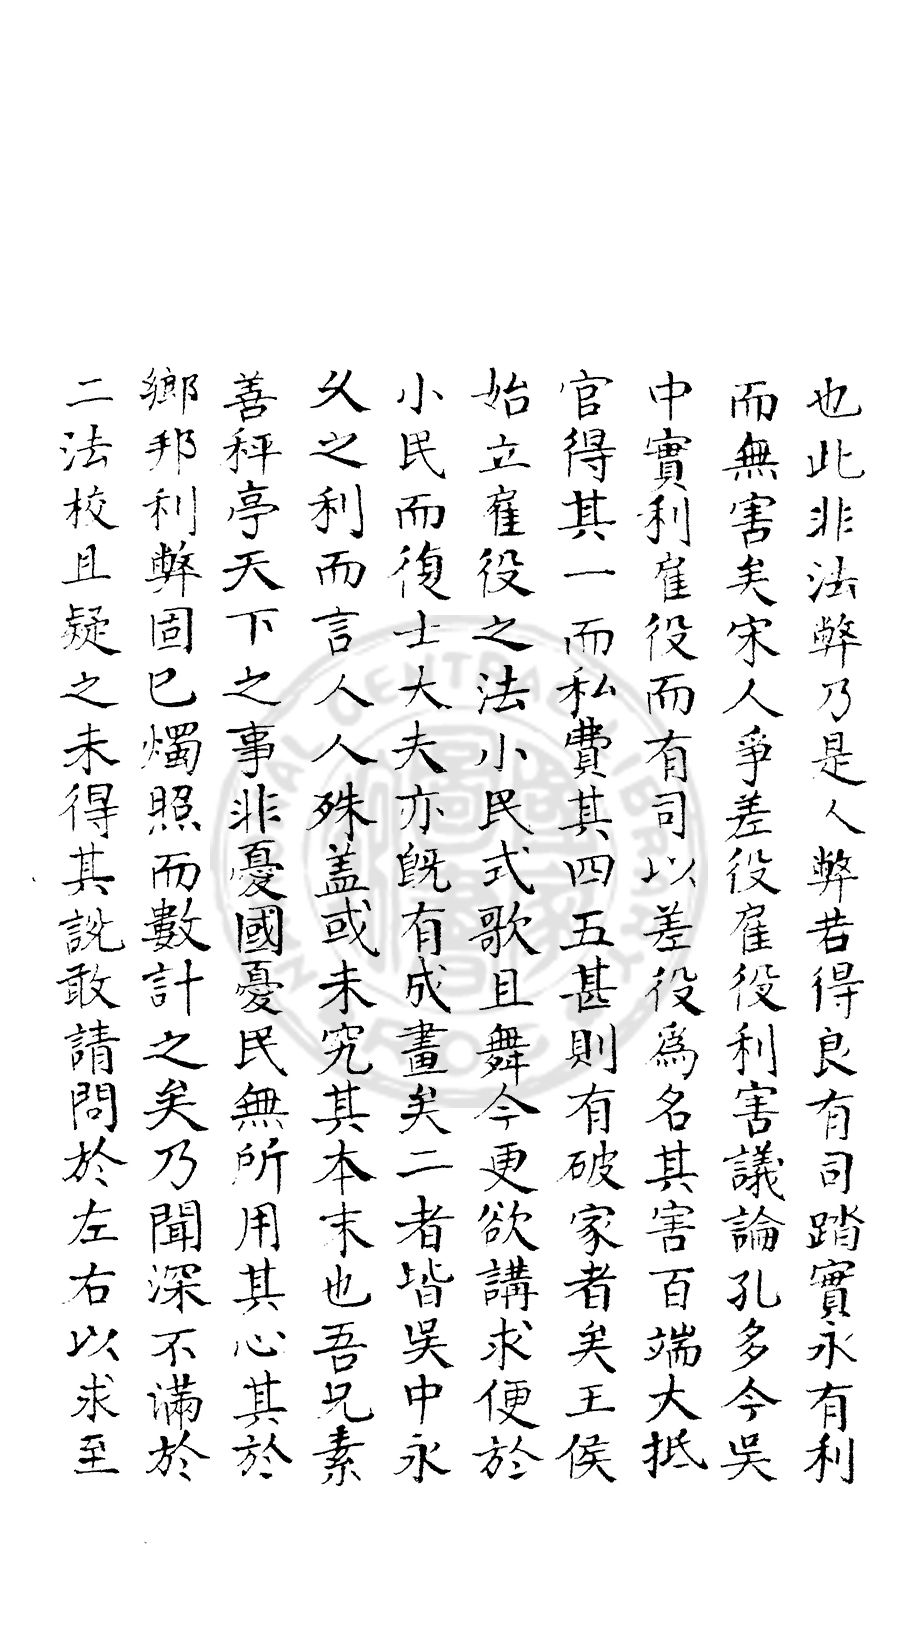 也此非法弊乃是人弊若得良有司踏實永有利
而無害矣宋人爭差役雇役利害議論孔多今吳
中實利雇役而有司以差役為名其害百端大抵
官得其一而私費其四五甚則有破家者矣王侯
始立雇役之法小民式歌且舞今更欲講求便於
小民而復士大夫亦旣有成畫矣二者皆吳中永
久之利而言人人殊盖或未究其本末也吾兄素
善秤亭天下之事非憂國憂民無所用其心其於
鄉邦利弊固巳燭照而數計之矣乃聞深不滿於
二法校且疑之未得其說敢請問於左右以求至
NATIONAL CENTRAL LIBRARY